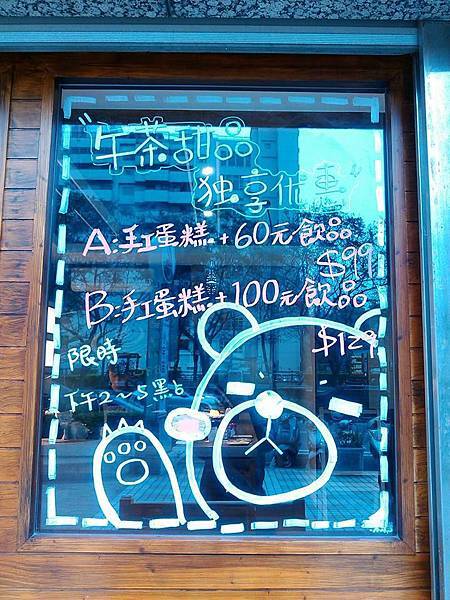 "午茶甜品
独享优惠"
A:手工蛋糕+60元飲品
$99
B:手工蛋糕+100元飲品
$129
限時
下午2~5點